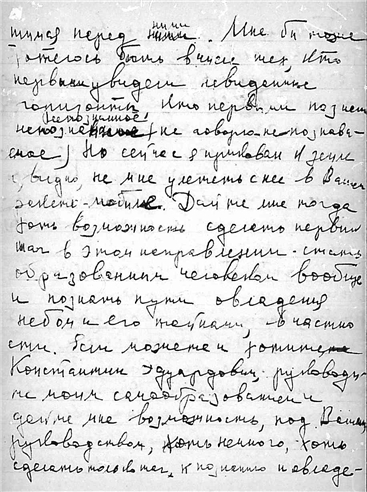 шихся перед ними. Мне бы тоже
хотелось быть в числе тех, кто
первыми увидели невиданные
горизонты, кто первыми познали
непознанное (не говорю непознава-
емое) Но сейчас я прикован к земле
и, видно, не мне улететь с нее в Вашем
Дайте мне тогда
хоть возможность сделать первый
шаг в этом направлении - стать
образованным человеком вообще
и познать пути овладения
небом и его тайнами, в частно
сти. Если можете и хотите
Константин Эдуардович, руководи-
те моим самообразованием
дайте мне возможность, под Вашим
руководством, хоть немного, хоть
сделать к познанию и овладе-